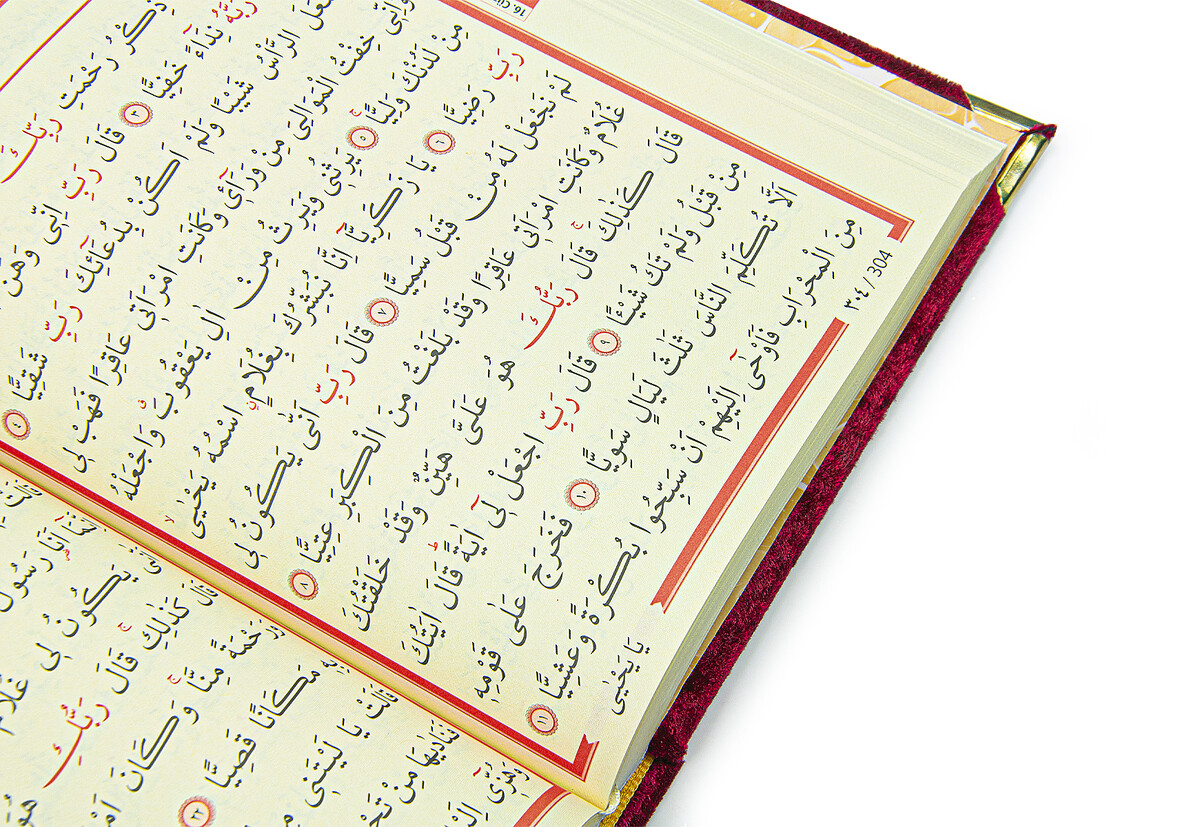 ذِكْرُ رَحْمَتِ رَبِّكَ
رَبَّهُ نِدَٓاءً خَفِيًّا ﴿٣﴾ قَالَ رَبِّ اِنّٖى وَهَنَ
الرَّاْسُ شَيْبًا وَلَمْ اَكُنْ بِدُعَٓائِكَ رَبِّ شَقِيًّا ﴿٤﴾
وَاِنّٖى خِفْتُ الْمَوَالِىَ مِنْ وَرَٓائٖى وَكَانَتِ امْرَاَتٖى عَاقِرًا فَهَبْ لٖى
مِنْ لَدُنْكَ وَلِيًّاۚ ﴿٥﴾ يَرِثُنٖى وَيَرِثُ مِنْ اٰلِ يَعْقُوبَۗ وَاجْعَلْهُ
رَبِّ رَضِيًّا ﴿٦﴾ يَا زَكَرِيَّٓا اِنَّا نُبَشِّرُكَ بِغُلَامٍۨ اسْمُهُ يَحْيٰىۙ
لَمْ نَجْعَلْ لَهُ مِنْ قَبْلُ سَمِيًّا ﴿٧﴾ قَالَ رَبِّ اَنّٰى يَكُونُ لٖى
غُلَامٌ وَكَانَتِ امْرَاَتٖى عَاقِرًا وَقَدْ بَلَغْتُ مِنَ الْكِبَرِ عِتِيًّا ﴿٨﴾
قَالَ كَذٰلِكَۚ قَالَ رَبُّكَ هُوَ عَلَىَّ هَيِّنٌ وَقَدْ خَلَقْتُكَ
مِنْ قَبْلُ وَلَمْ تَكُ شَيْـًٔا ﴿٩﴾ قَالَ رَبِّ اجْعَلْ لٖٓى اٰيَةًۜ قَالَ اٰيَتُكَ
اَلَّا تُكَلِّمَ النَّاسَ ثَلٰثَ لَيَالٍ سَوِيًّا ﴿١٠﴾ فَخَرَجَ عَلٰى قَوْمِهٖ
مِنَ الْمِحْرَابِ فَاَوْحٰٓى اِلَيْهِمْ اَنْ سَبِّحُوا بُكْرَةً وَعَشِيًّا ﴿١١﴾
٣٠٤ / 304
يَا يَحْيٰى
اَنَا رَسُولُ
يَكُونُ لٖى غُلَامٌ
قَالَ كَذٰلِكِۚ قَالَ رَبُّكِ هُوَ
وَرَحْمَةً مِنَّاۚ وَكَانَ
مَكَانًا قَصِيًّا ﴿٢٢﴾
قَالَتْ يَا لَيْتَنٖى
فَنَادٰيهَا مِنْ
وَهُزّٖٓى